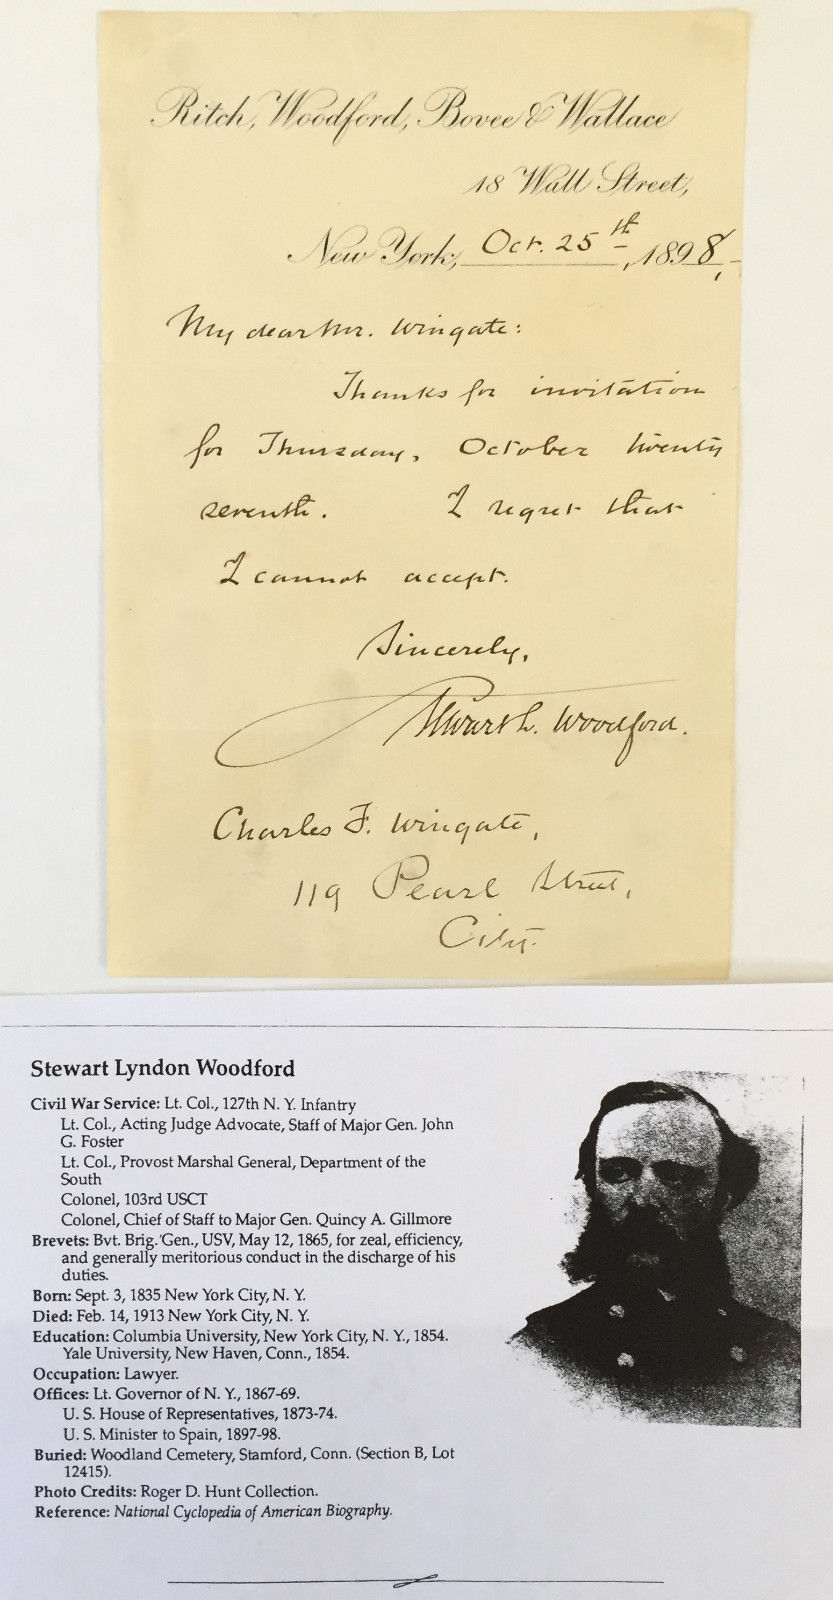 Ritch, Woodford, Bovee & Wallace
18 Wall Street,
New York, Oct. 25th, 1898,-
My dear Mr. Wingate:
Thanks for invitation
for Thursday, October twenty
seventh. I regret that
I cannot accept.
Sincerely,
Stewart L. Woodford.
Charles F. Wingate,
119 Pearl Street,
City.
Stewart Lyndon Woodford
Civil War Service: Lt. Col., 127th N. Y. Infantry
Lt. Col., Acting Judge Advocate, Staff of Major Gen. John
G. Foster
Lt. Col., Provost Marshal General, Department of the
South
Colonel, 103rd USCT
Colonel, Chief of Staff to Major Gen. Quincy A. Gillmore
Brevets: Bvt. Brig. Gen., USV, May 12, 1865, for zeal, efficiency,
and generally meritorious conduct in the discharge of his
duties.
Born: Sept. 3, 1835 New York City, N. Y.
Died: Feb. 14, 1913 New York City, N. Y.
Education: Columbia University, New York City, N. Y., 1854.
Yale University, New Haven, Conn., 1854.
Occupation: Lawyer.
Offices: Lt. Governor of N. Y., 1867-69.
U. S. House of Representatives, 1873-74.
U. S. Minister to Spain, 1897-98.
Buried: Woodland Cemetery, Stamford, Conn. (Section B, Lot
12415).
Photo Credits: Roger D. Hunt Collection.
Reference: National Cyclopedia of American Biography.